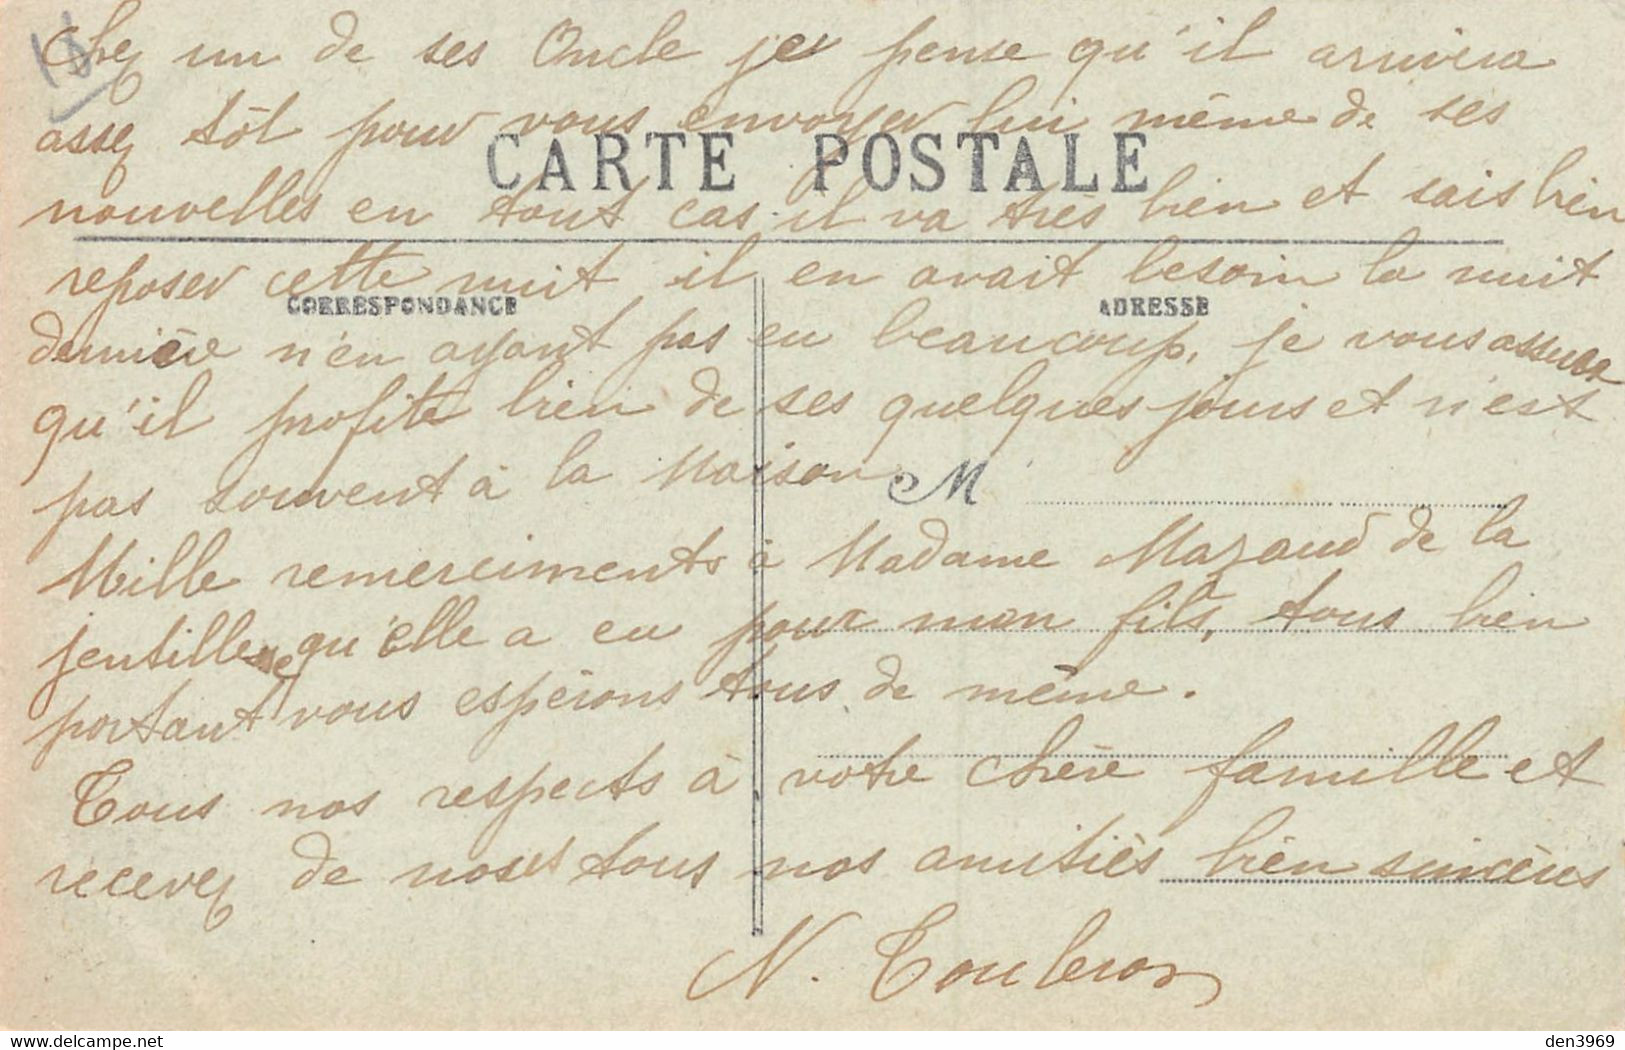 chez un de ses Oncle je pense qu'il arrivera
assez tôt pour vous envoyer lui même de ses
CARTE POSTALE
nouvelles en tout cas il va très bien et sais bien
reposer cette nuit il en avait besoin la nuit
CORRESPONDANCE
ADRESSE
dernière n'en ayant pas eu beaucoup, je vous assure
qu'il profite bien de ses quelques jours et n'est
pas souvent à la Maison.
M
Mille remerciments à Madame Mazaud de la
jentillesse qu'elle a eu pour mon fils, tous bien
portant vous espérons tous de même.
Tous nos respects à votre chère famille et
recevez de nous tous nos amitiès bien sincères
N.
den3969